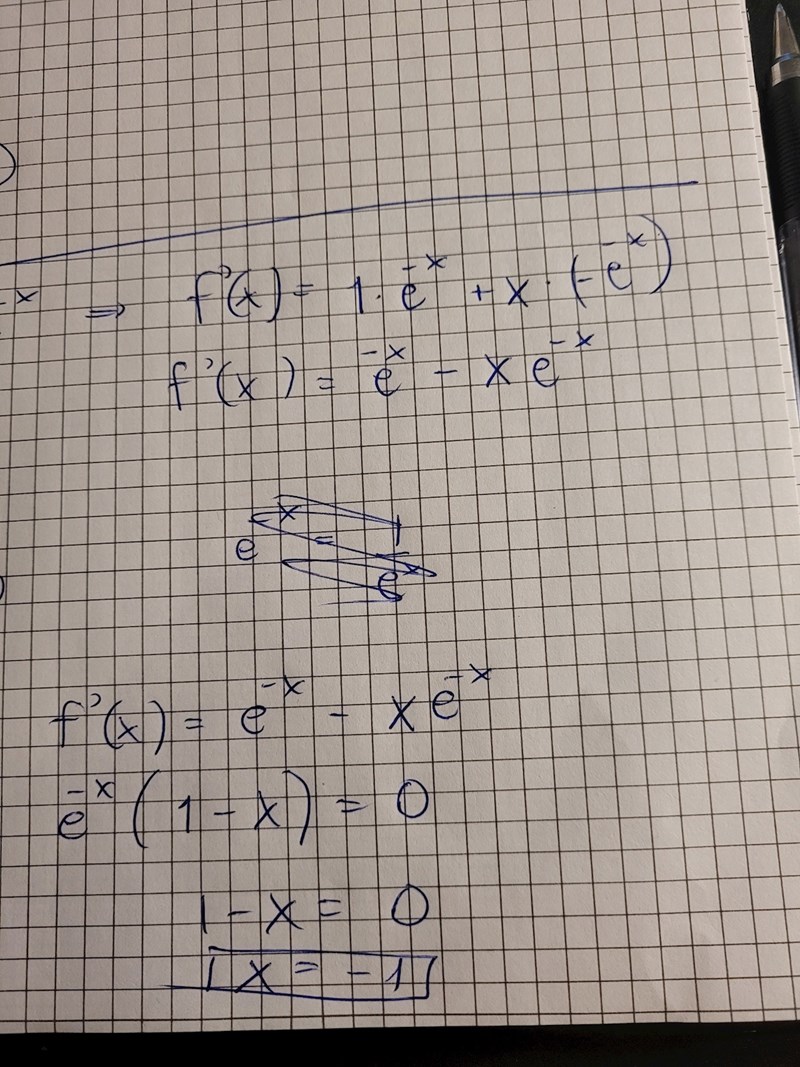 -x ⇒ f'(x) = 1 · e^-x + x · (-e^-x)
f'(x) = e^-x - x e^-x
e^x = 1/e^x
f'(x) = e^-x - x e^-x
e^-x (1 - x) = 0
1 - x = 0
x = -1